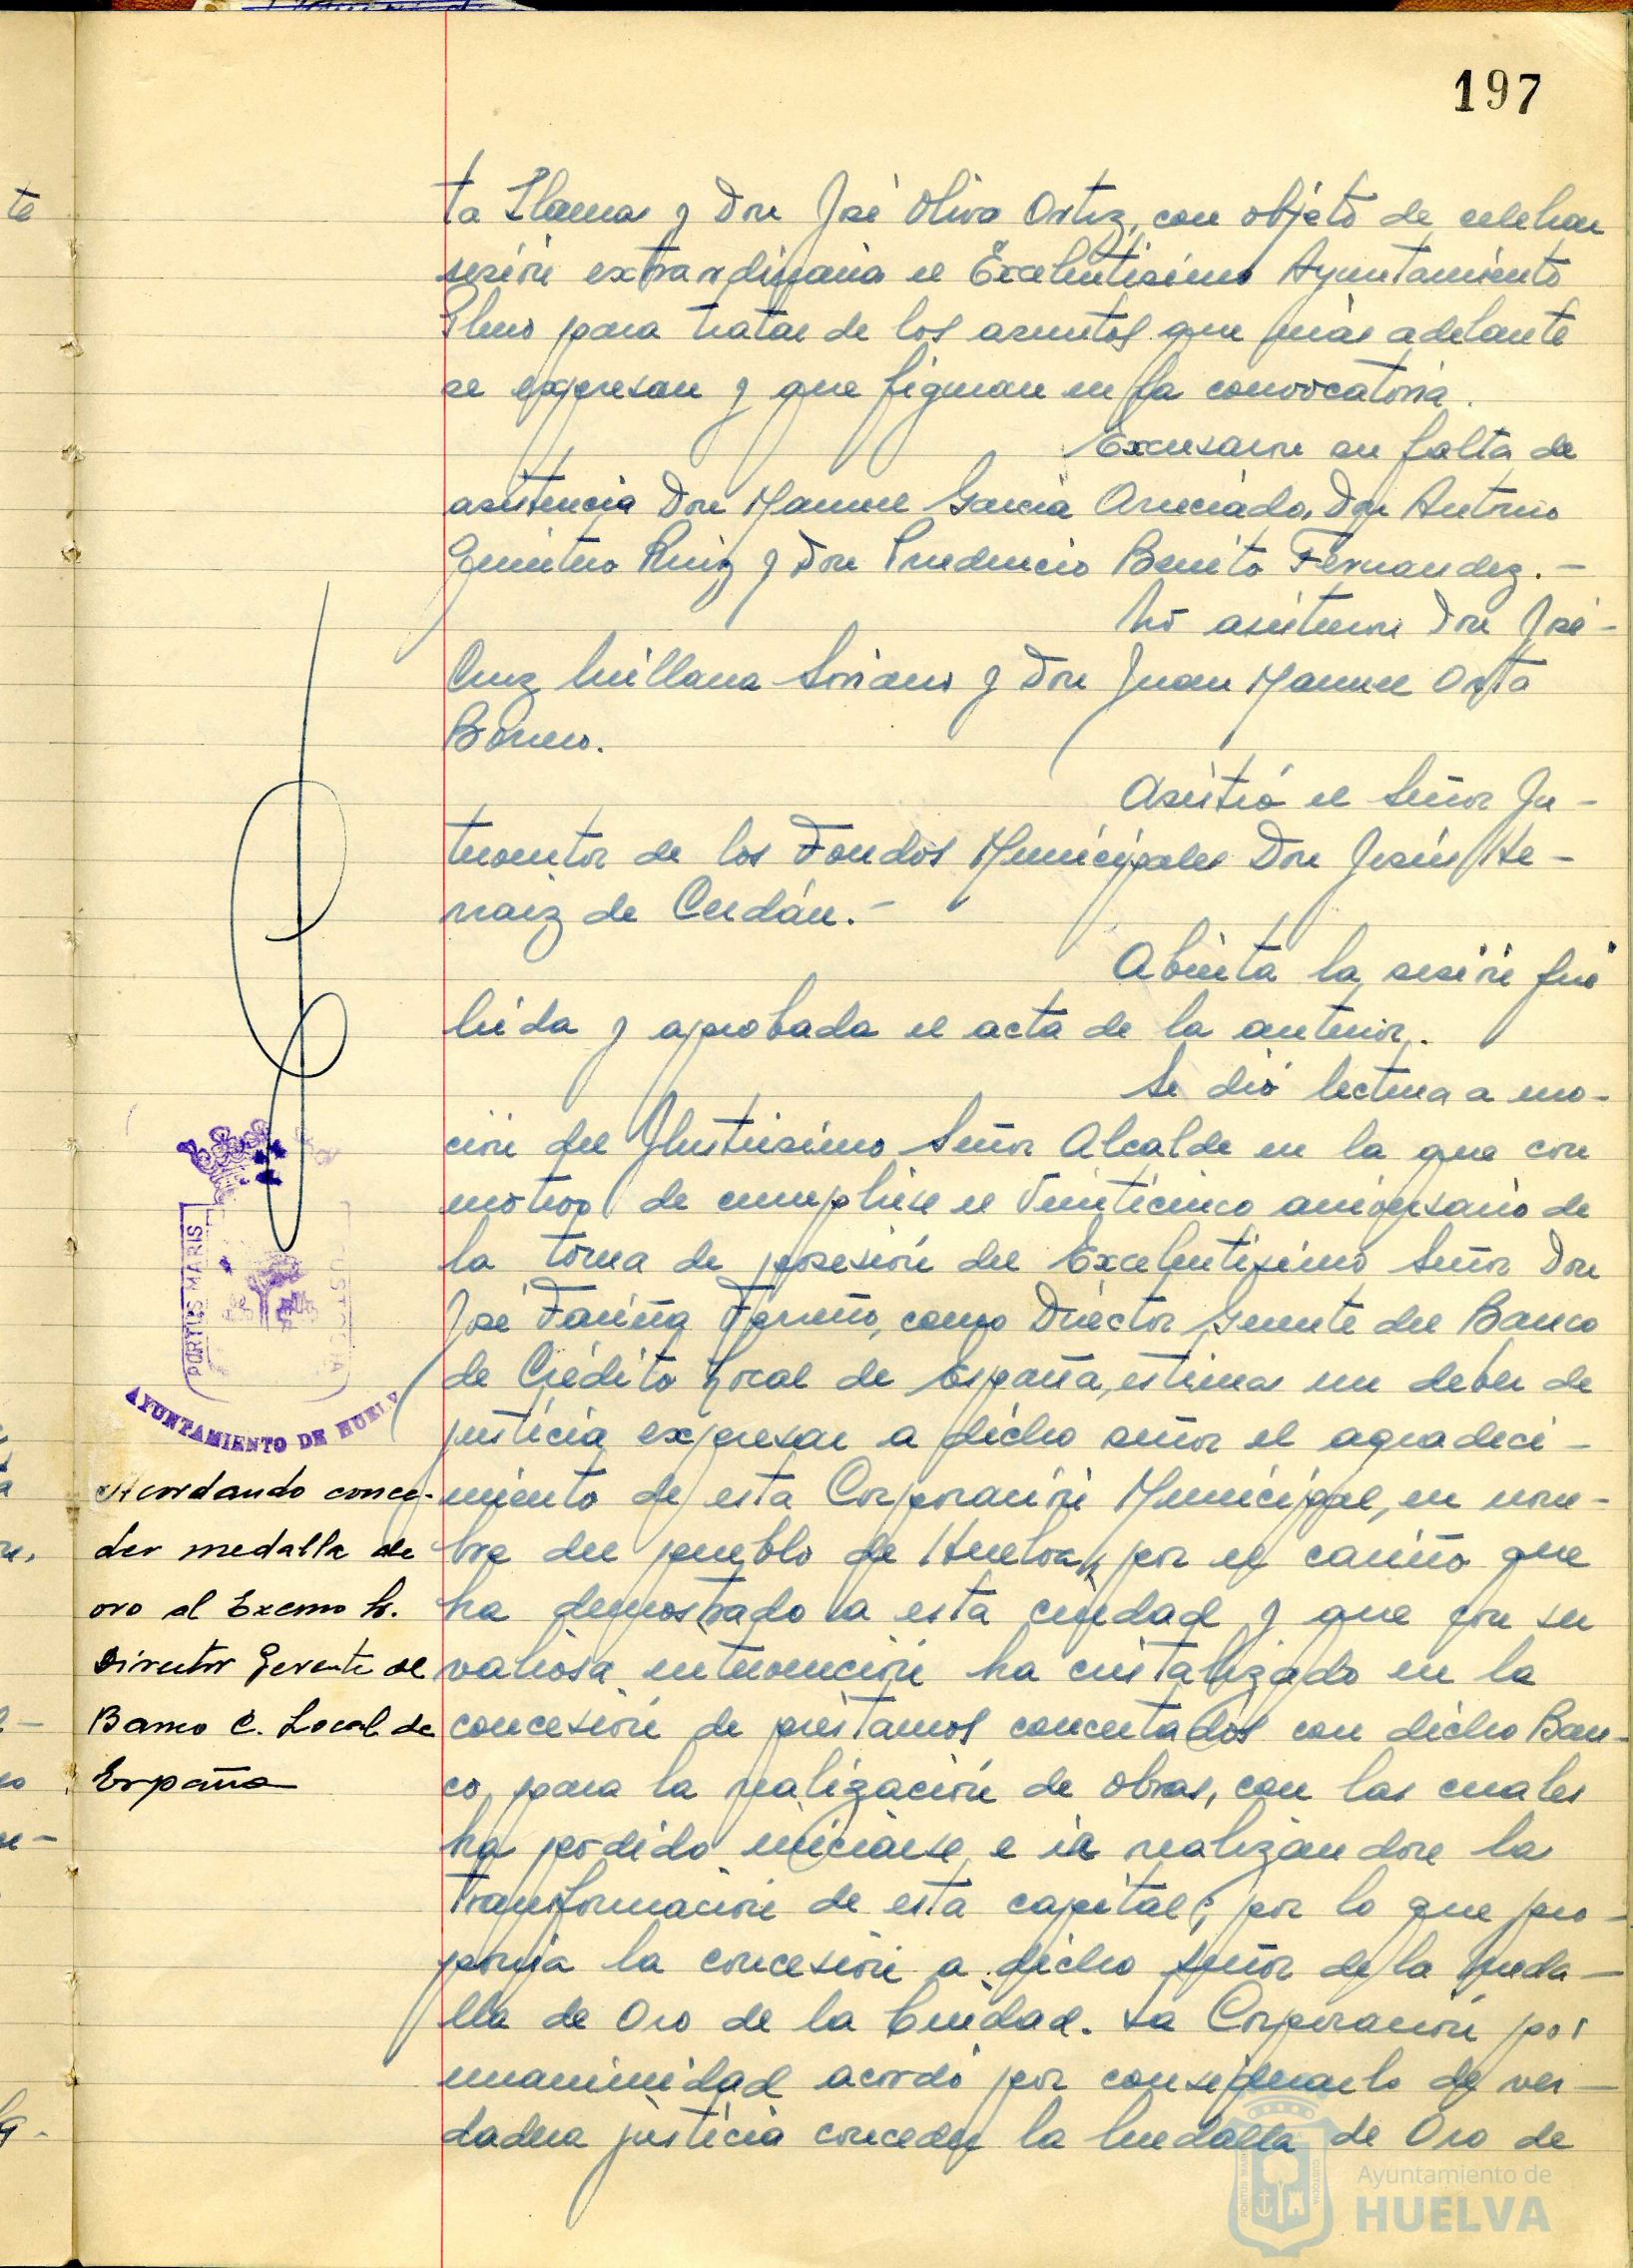 197
ta Llamas y Don José Oliva Ortiz, con objeto de celebrar
sesión extraordinaria el Excelentisimo Ayuntamiento
Pleno para tratar de los asuntos que más adelante
se expresan y que figuran en la convocatoria.
Excusaron su falta de
asistencia Don Manuel Garcia Don Antonio
Quintero Ruiz y Don Prudencio Benito Fernandez.-
No asistieron Don José-
Cruz Millana Soriano y Don Juan Manuel Orta
Borrero.
Asistió el Señor In-
terventor de los Fondos Municipales Don Jesús He-
rraiz de Cerdán.-
Abierta la sesión fué
leida y aprobada el acta de la anterior.
Se dió lectura a mo-
ción del Ilustrisimo Señor Alcalde en la que con
motivo de cumplirse el Veinticinco aniversario de
la toma de posesión del Excelentisimo Señor Don
José Fariña Ferreño, como Director Gerente del Banco
de Crédito Local de España, estimar un deber de
justicia expresar a dicho señor el agradeci-
miento de esta Corporación Municipal, en nom-
bre del pueblo de Huelva, por el cariño que
ha demostrado a esta ciudad y que con su
valiosa intervención ha cristalizado en la
concesión de préstamos concertados con dicho Ban-
co, para la realización de obras, con las cuales
ha podido iniciarse e ir realizandose la
transformación de esta capital; por lo que pro-
ponia la concesión a dicho señor de la Meda-
lla de Oro de la Ciudad. La Corporación por
unanimidad acordó por considerarlo de ver-
dadera justicia conceder la Medalla de Oro de
PORTUS MARIS
AYUNTAMIENTO DE HUELV
Acordando conce-
der medalla de
oro al Excmo Sr.
Director Gerente del
Banco C. Local de
España
Ayuntamiento de
HUELVA